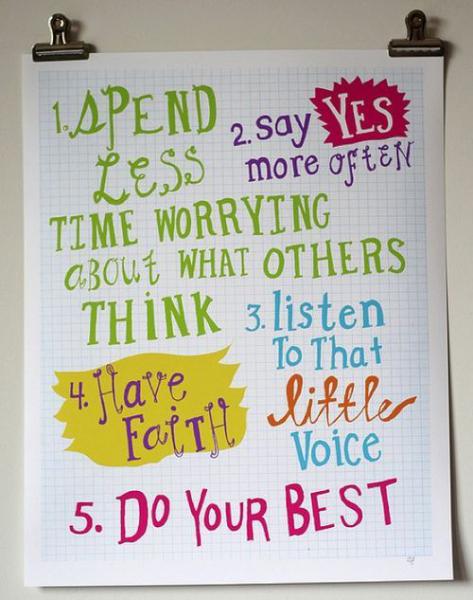 1. SPEND
LESS
TIME WORRYING
aBOUt WHAT OTHERS
THINK
2. say YES
more OFTEN
3. listen
To That
little
Voice
4. Have
FaiTH
5. DO YOUR BEST